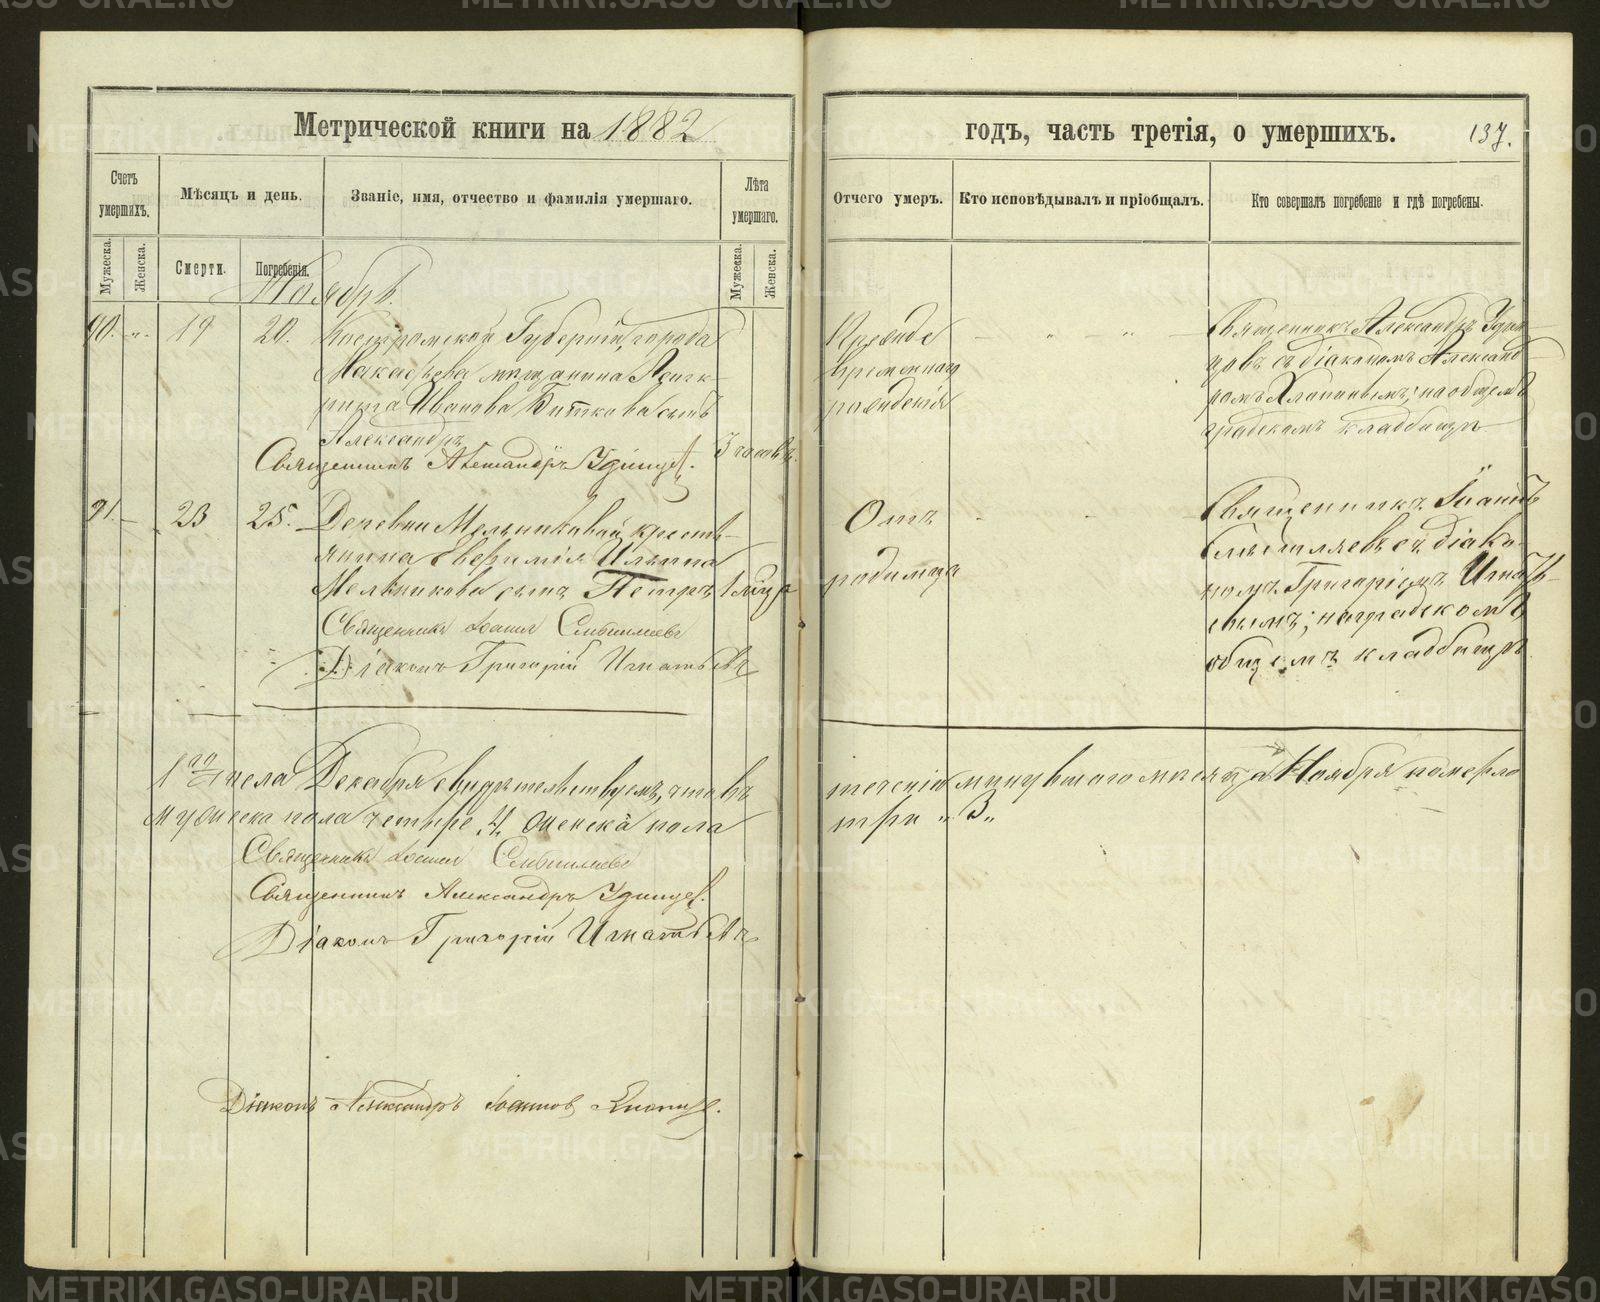 Метрической книги на 1882
годъ, часть третія, о умершихъ. 137.
Счетъ умершихъ.
Мѣсяцъ и день.
Званіе, имя, отчество и фамилія умершаго.
Лѣта умершаго.
Отчего умеръ.
Кто исповѣдывалъ и пріобщалъ.
Кто совершалъ погребеніе и гдѣ погребены.
Мужеска.
Женска.
Смерти.
Погребенія.
Мужеска.
Женска.
Ноябрь.
90. 19 20.
Костромской Губерніи, города
Макарьева мѣщанина
Иванова сынъ
Александръ
3 часовъ
Священникъ Александръ Удинцев.
Прежде
временнаго
рожденія
Священникъ Александръ Удин-
цовъ съ діакономъ Александ-
ромъ; на общемъ
градскомъ кладбищѣ
91. 23 25.
Деревни Мельниковой кресть-
янина Ильина
Мельникова сынъ Петръ
1 года
Священникъ Іоаннъ
Діаконъ Григорій Игнатьевъ
Отъ
родимца
Священникъ Іоаннъ
съ діако-
номъ Григоріемъ Игнать-
евымъ; на градскомъ
общемъ кладбищѣ
1го числа Декабря свидѣтельствуемъ, что въ
теченіи минувшаго мѣсяца Ноября померло
мужеска пола четыре „4„ женска пола
три „3„
Священникъ Іоаннъ
Священникъ Александръ Удинцев.
Діаконъ Григорій Игнатьевъ
Діаконъ Александръ Іоанновъ
METRIKI.GASO-URAL.RU